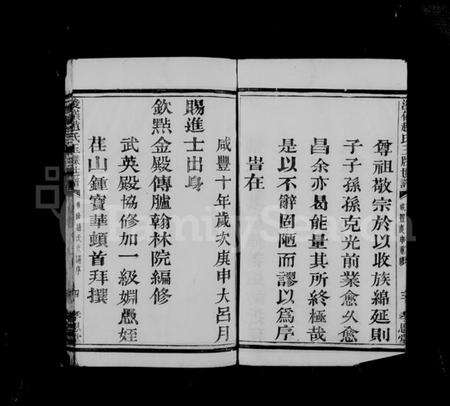 尊祖敬宗於以收族綿延則
子子孫孫克光前業愈久愈
昌余亦曷能量其所終極哉
是以不辭固陋而謬以爲序
旹在
咸豐十年歲次庚申大呂月
賜進士出身
欽點金殿傳臚翰林院編修
武英殿協修加一級姻愚姪
荏山鍾寶華頓首拜撰